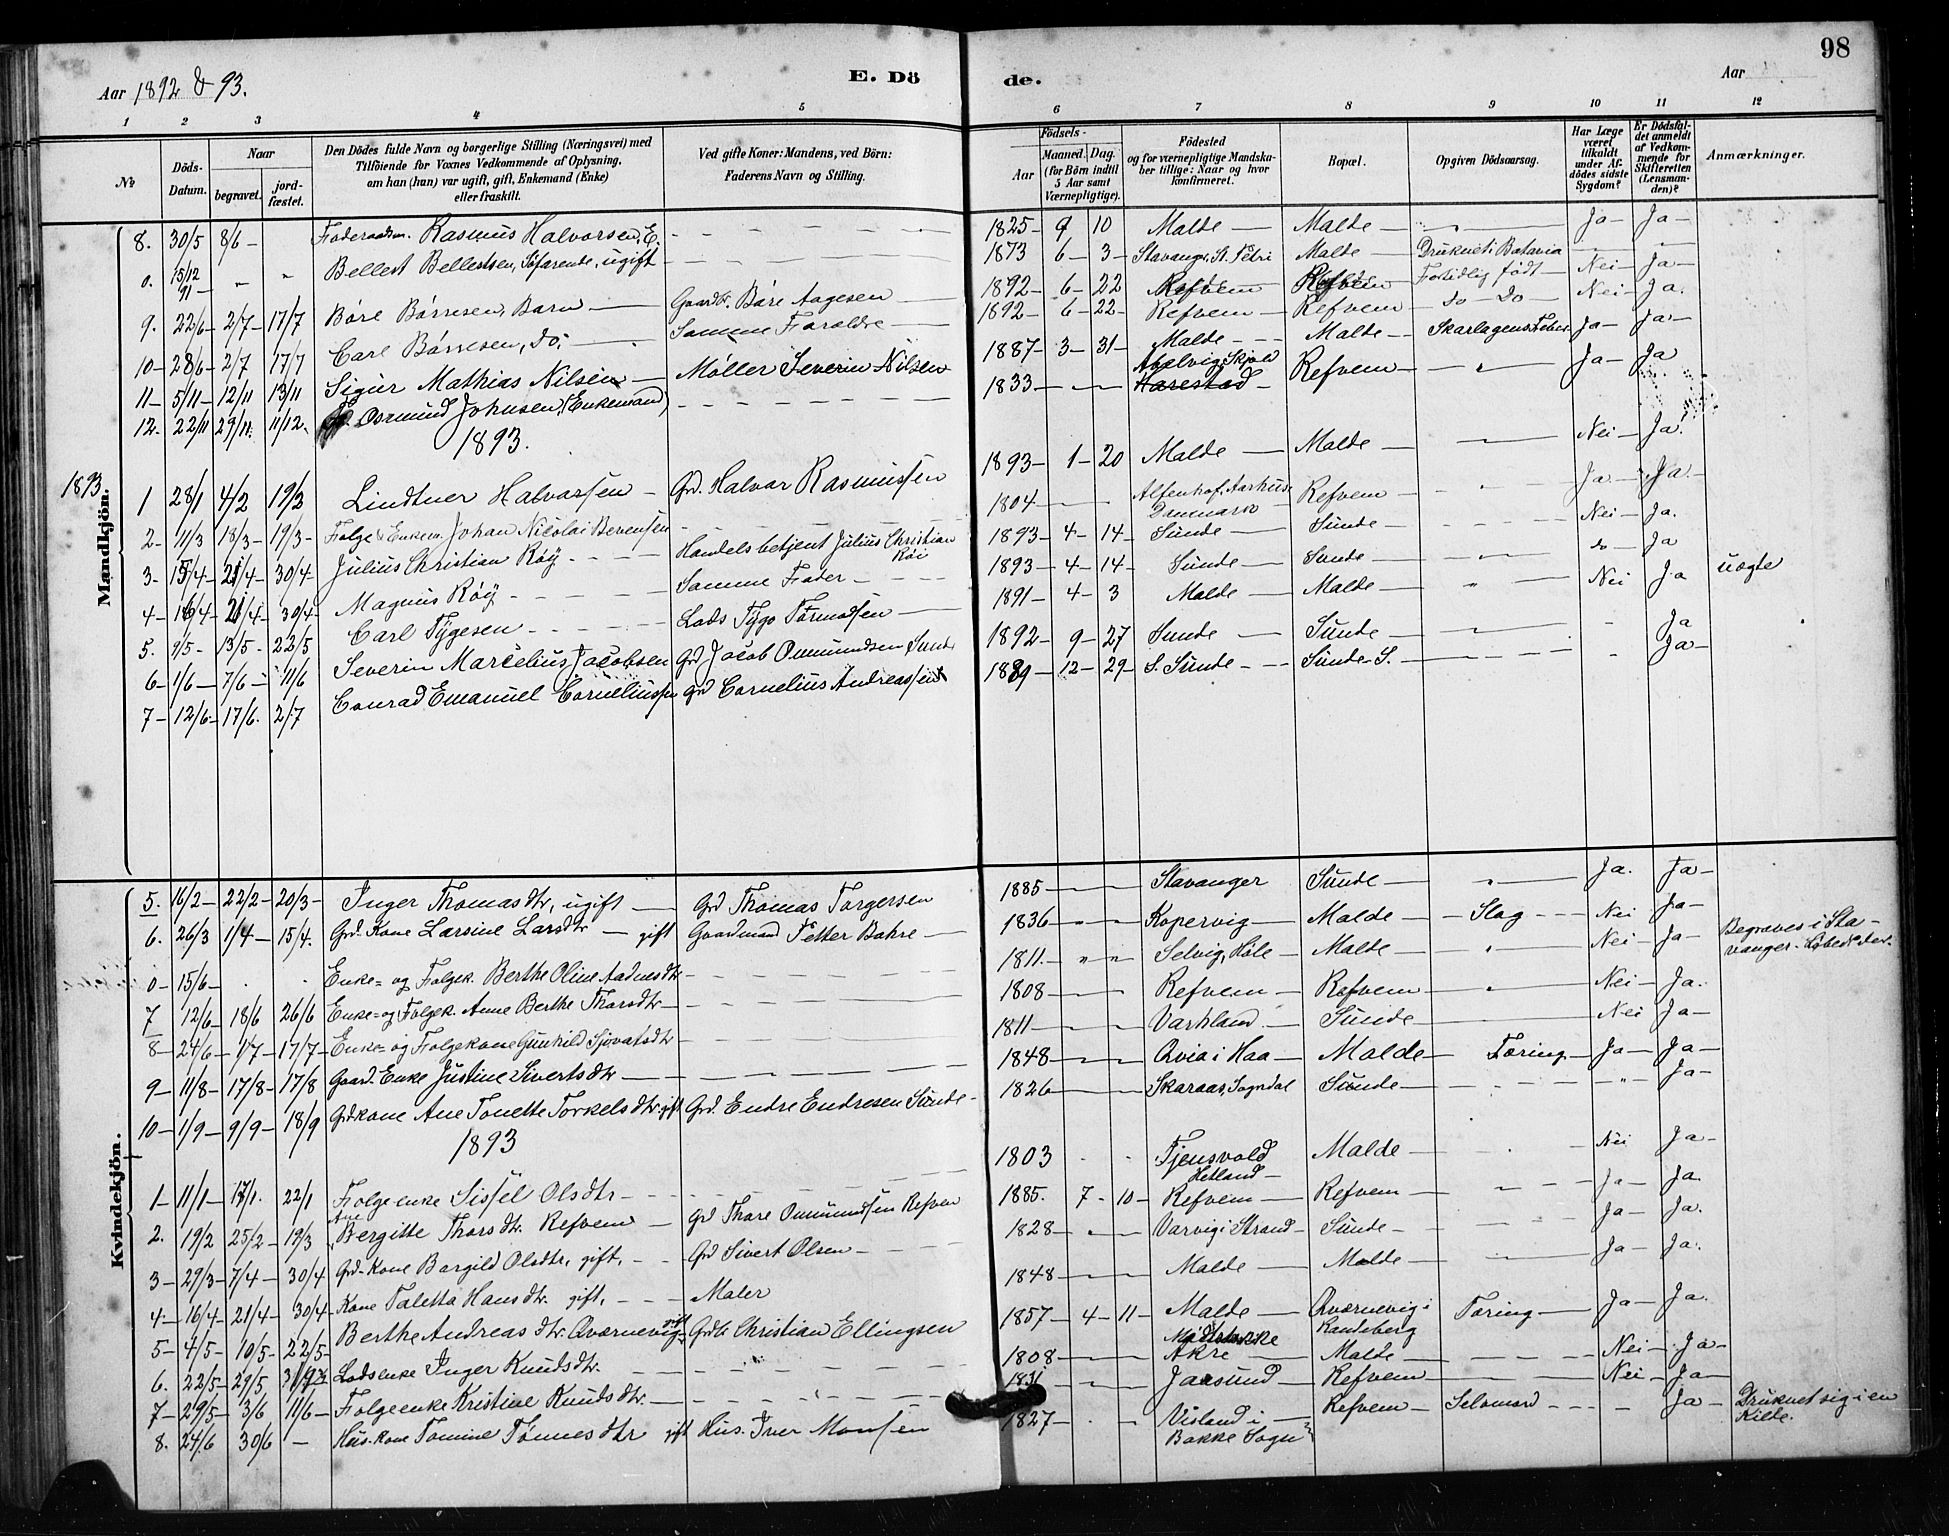 98
Aar 1892 & 93.
E. Dö
de.
Aar
1 2 3 4 5 6 7 8 9 10 11 12
No
Döds-Datum.
Naar
begravet.
jord-fæstet.
Den Dödes fulde Navn og borgerlige Stilling (Næringsvei) med
Tilföiende for Voxnes Vedkommende af Oplysning,
om han (hun) var ugift, gift, Enkemand (Enke)
eller fraskilt.
Ved gifte Koner: Mandens, ved Börn:
Faderens Navn og Stilling.
Födsels-
Aar
Maaned. Dag.
(for Börn indtil
5 Aar samt
Værnepligtige).
Födested
og for værnepligtige Mandska-
ber tillige: Naar og hvor
konfirmeret.
Bopæl.
Opgiven Dödsaarsag.
Har Læge
været
tilkaldt
under Af-
dödes sidste
Sygdom?
Er Dödsfal-
det anmeldt
af Vedkom-
mende for
Skifteretten
(Lensman-
den)?
Anmærkninger.
Mandkjön.
8. 30/5 8/6 – Foderaadsm. Rasmus Halvorsen, E. 1825 – 9 10 Malde – Malde – " – Ja – Ja –
0. 15/12 91 – " Bellest Bellestsen, Söfarende, ugift 1873 6 – 3 – Stavanger, St. Petri Malde – Druknet i Batavia
9. 22/6 – 2/7 – 17/7 Båre Børresen, Barn – Gaardbr. Båre Aagesen – 1892 – 6 – 22 Refvem Refvem Fortidlig født – Nei – Ja –
10 – 28/6 – 2/7 17/7 Carl Børresen, do; – Samme Forældre – 1892 – 6 – 22 – Refvem – Refvem – do – do – Nei – Ja.
11 – 5/11 – 12/11 13/11 Sigur Mathias Nilsen – Møller Severin Nilsen 1887 – 3 – 31 – Malde – Malde – Skarlagensfeber Ja – Ja –
12. 22/11 29/11. 11/12. Osmund Johnsen, (Enkemand) 1833 – Skjold Harestad – Refvem – " – Ja – Ja
1893.
1893.
1 28/1 4/2 19/3 Lindtner Halvorsen – Grd. Halvor Rasmussen 1893 – 1 – 20 Malde – Malde – Nei – Ja.
2 – 11/3 18/3 – 19/3 – Folge & Enkem. Johan Nicolai Berentsen 1804 – Aarhus Danmark Refvem – Ja – Ja –
3 – 15/4 – 21/4 – 30/4 – Julius Christian Røÿ – Handelsbetjent Julius Christian Røi 1893 – 4 – 14 – Sunde – Sunde – Nei – Ja.
4 – 16/4 21/4 – 30/4 – Magnus Røÿ – Samme Fader – 1893 – 4 – 14 – Sunde – Sunde – do – Ja
5. 9/5 – 13/5 – 22/5 Carl Tÿgesen – Lods Tÿge Tormodsen – 1891 – 4 – 3 Malde – Malde – Nei Ja uægte
6 – 1/6 – 7/6 – 11/6 Severin Marcelius Jacobsen Grd Jacob Ommundsen Sunde 1892 – 9 – 27 Sunde – Sunde – Ja
7 – 12/6 – 17/6. 2/7 Conrad Emanuel Corneliussen Grd Cornelius Andreassen 1889 – 12 – 29 – S. Sunde – Sunde S. – Ja –
Kvindekjön.
5. 16/2 – 22/2 – 20/3 – Inger Thomasdtr, ugift – Grd Thomas Torgersen 1885 – Stavanger Sunde – " – Ja. Ja –
6. 26/3 1/4 – 15/4. Grd. Kone Larsine Larsdtr – gift Gaardmand Petter Bahre – 1836 – Kopervig – Malde – Slag – Nei Ja –
0 – 15/6 – Enke= og Folgek. Berthe Oline Aadnesdtr – 1811 – Selvig, Håle – Malde – Nei – Ja – Begraves i Stavanger
7 12/6 – 18/6 26/6 Enke= og Folgek. Anne Berthe Thorsdtr – 1808 – Refvem – Refvem – " – Nei – Ja.
8 – 24/6 – 1/7 – 17/7 – Enke= og Folgekone Gunhild Sjovatsdtr 1811 – Varhland – Sunde – Nei Ja –
9 – 11/8 – 17/8 – 17/8 Gaard. Enke Justine Sivertsdtr – 1848 – Qvia i Haa – Malde – Tæring – Ja – Ja –
10 – 1/9 – 9/9 – 18/9 Grdkone Ane Tonette Torkelsdtr. gift Grd. Endre Endresen Sunde – 1826 – Skaraas, Sogndal Sunde – Ja –
1893
1 – 11/1 – 17/1. 22/1 Folgeenke Sissel Olsdtr – 1803 Tjensvold Hetland – Malde – Nei Ja –
2. 19/2 25/2 – 19/3 Ane Bergitte Thorsdtr. Refvem – Grd Thore Ommundsen Refvem 1885. 7 – 10 – Refvem – Refvem – Ja – Ja.
3 – 29/3 – 7/4 – 30/4 Grd – Kone Borgild Olsdtr, gift, – Grd Sivert Olsen – 1828 – Varvig i Strand – Sunde – Ja – Ja.
4 – 16/4 – 21/4 30/4 – Kone Taletta Hansdtr. gift, – Maler 1848 – Malde – Malde – Ja – Ja.
5 – 4/5 – 10/5 – 22/5 – Berthe Andreasdtr Qværnevig – gift Grdbr Christian Ellingsen 1857 – 4 – 11 – Malde – Qværnevig i Randeberg Tæring – Ja – Ja.
6. 22/5 – 29/5 Lodsenke Inger Knudsdtr. 1808 – Akre – Malde – Nei – Ja –
7 – 29/5 – 3/6 11/6 – Folgeenke Kristine Knudsdtr. – Jaasund – Refvem – Nei – Ja –
8. 24/6 30/6 – Hus. kone Tomine Tønnesdtr gift Hus. Iver Monsen 1827 – Visland i Bakke Sogn Refvem – Selvmord – Ja – Druknet sig i en Kilde.